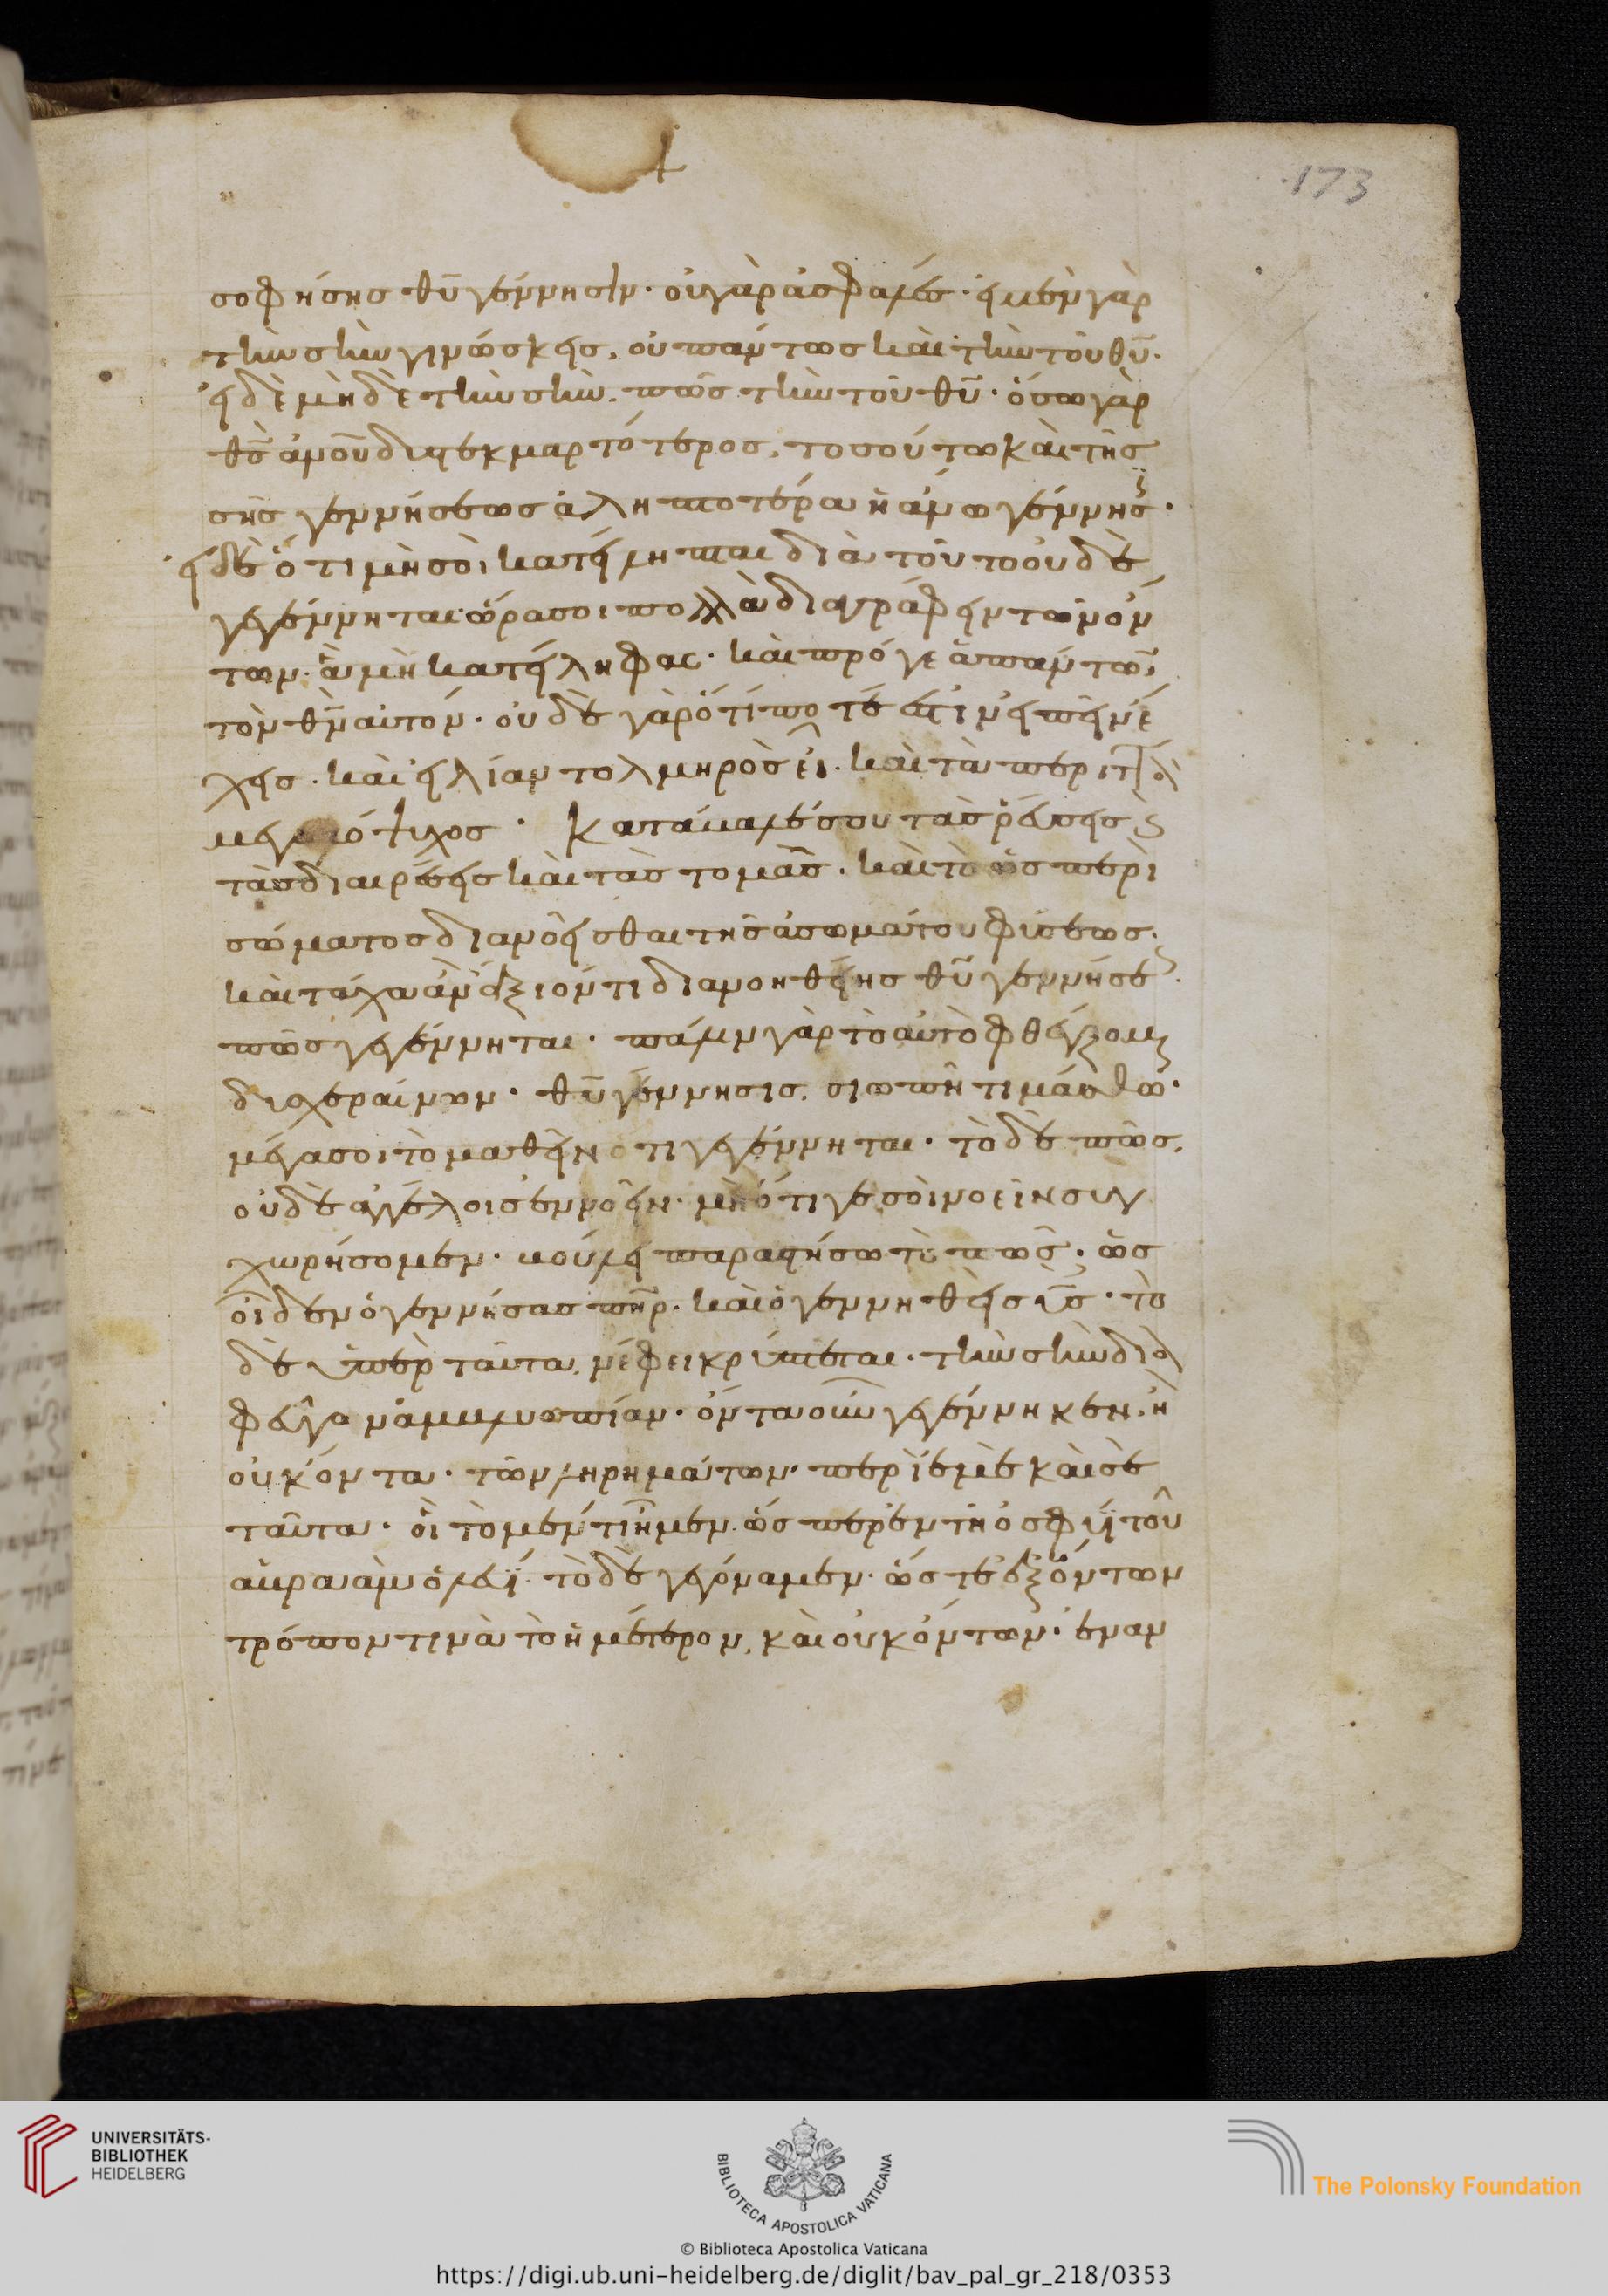 173
σοφήσης θῦ γέννησιν· οὐ γὰρ ἀσφαλές· εἰ μὲν γὰρ
τὴν σὴν γινώσκεις, οὐ πάντως καὶ τὴν τοῦ θῦ·
εἰ δὲ μὴδὲ τὴν σὴν, πῶς τὴν τοῦ θῦ· ὅσω γὰρ
θς ἀνοῦ δυστεκμαρτότερος, τοσούτω καὶ τῆς
σῆς γεννήσεως ἀληπτοτέρα ἡ ἄνω γέννησις·
εἰ δὲ ὅτι μὴ σοὶ κατείληπται διὰ τοῦτο οὐδὲ
γεγέννηται· ὥρα σοι πολλὰ διαγράφειν τῶν ὄν
των· ἃ μὴ κατείληφας· καὶ πρό γε ἁπάντων,
τὸν θν αὐτόν· οὐδὲ γὰρ ὅτί ποτέ ἐστιν εἰπεῖν ἔ
χεις· καὶ εἰ λίαν τολμηρὸς εἶ· καὶ τὰ περιττὰ
μεγαλόψυχος· Κατάβαλέ σου τὰς ῥεύσεις καὶ
τὰς διαιρέσεις καὶ τὰς τομάς· καὶ τὸ ὡς περὶ
σώματος διανοεῖσθαι τῆς ἀσωμάτου φύσεως·
καὶ τάχα ἂν ἄξιόν τι διανοηθείης θῦ γεννήσεως·
πῶς γεγέννηται· πάλιν γὰρ τὸ αὐτὸ φθέγξομαι
δυσχεραίνων· θῦ γέννησις, σιωπῆ τιμάσθω·
μέγα σοι τὸ μαθεῖν ὅτι γεγέννηται· τὸ δὲ πῶς,
οὐδὲ ἀγγέλοις ἐννοεῖν· μὴ ὅτι γε σοὶ νοεῖν συγ
χωρήσομεν· βούλει παραστήσω τὸ πῶς· ὡς
οἶδεν ὁ γεννήσας πηρ· καὶ ὁ γεννηθεὶς υς· τὸ
δὲ ὑπὲρ ταῦτα, νέφει κρύπτεται· τὴν σὴν δια
φεῦγον ἀμβλυωπίαν· ὄντα οὖν γεγέννηκεν, ἢ
οὐκ ὄντα· τῶν ληρημάτων· περὶ ἐμὲ καὶ σὲ
ταῦτα· οἳ τὸ μέν τι ἦμεν· ὥσπερ ἐν τῆ ὀσφύϊ τοῦ
ἀβραὰμ ὁ λευΐ· τὸ δὲ γεγόναμεν· ὥστε ἐξ ὄντων
τρόπον τινὰ τὸ ἡμέτερον, καὶ οὐκ ὄντων· ἐναν
UNIVERSITÄTS-
BIBLIOTHEK
HEIDELBERG
BIBLIOTECA APOSTOLICA VATICANA
© Biblioteca Apostolica Vaticana
The Polonsky Foundation
https://digi.ub.uni-heidelberg.de/diglit/bav_pal_gr_218/0353